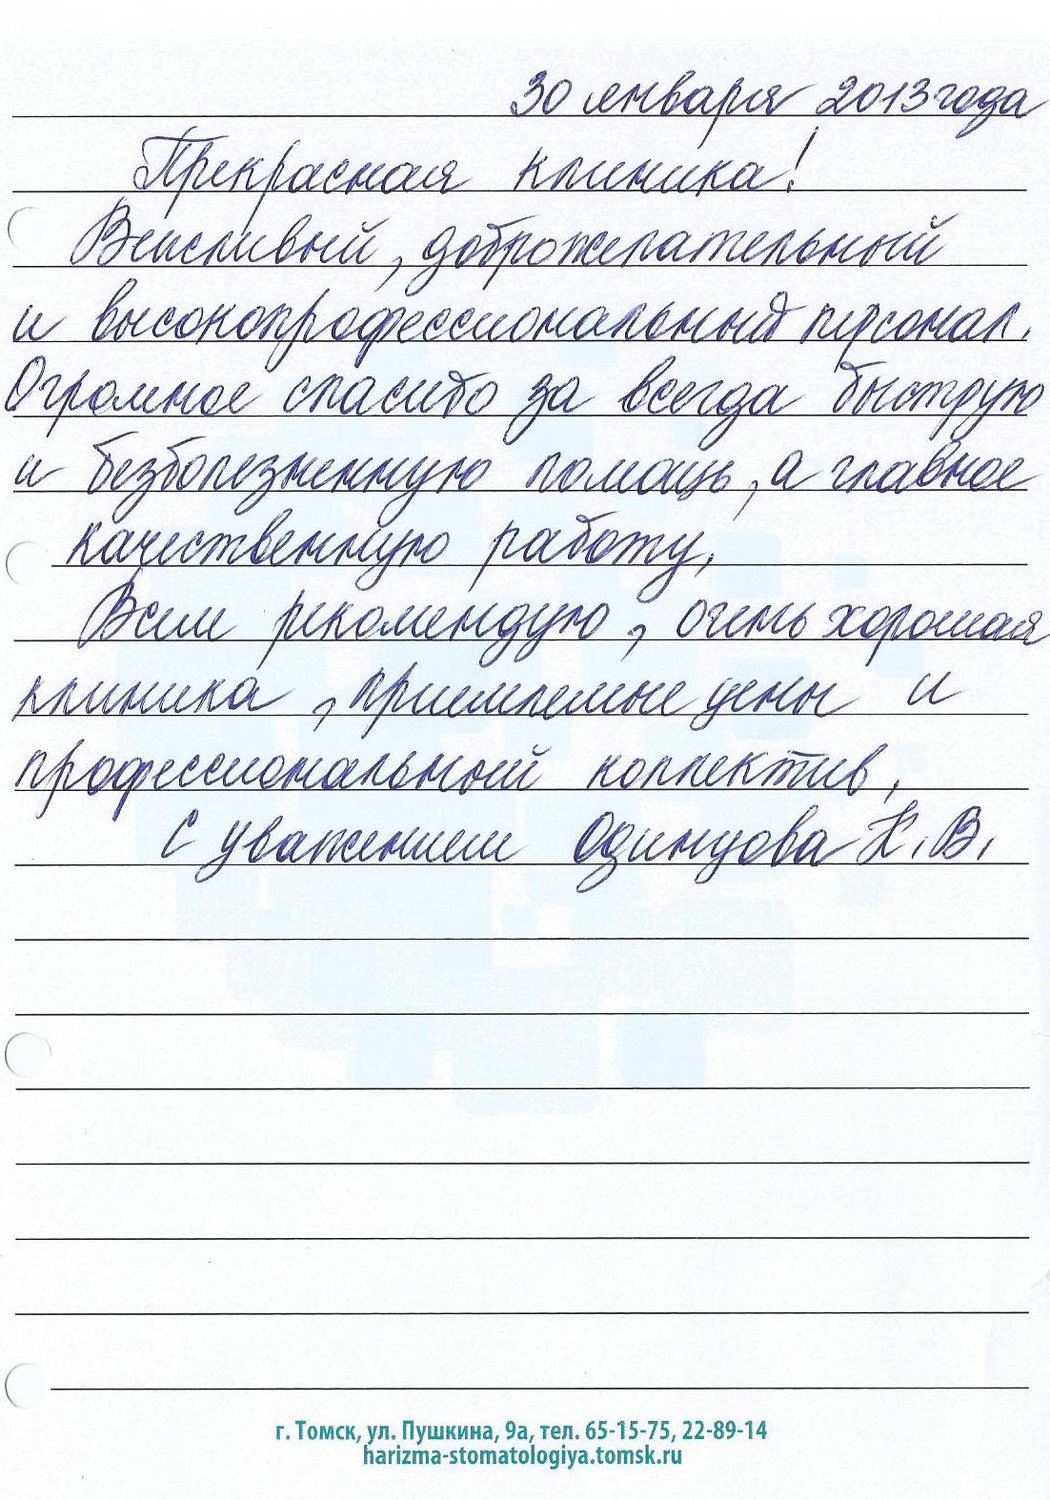 30 января 2013 года
Прекрасная клиника!
Вежливый, доброжелательный
и высокопрофессиональный персонал.
Огромное спасибо за всегда быструю
и безболезненную помощь, а главное
качественную работу.
Всем рекомендую, очень хорошая
клиника, приемлемые цены и
профессиональный коллектив.
С уважением Одинцова К. В.
г. Томск, ул. Пушкина, 9а, тел. 65-15-75, 22-89-14
harizma-stomatologiya.tomsk.ru